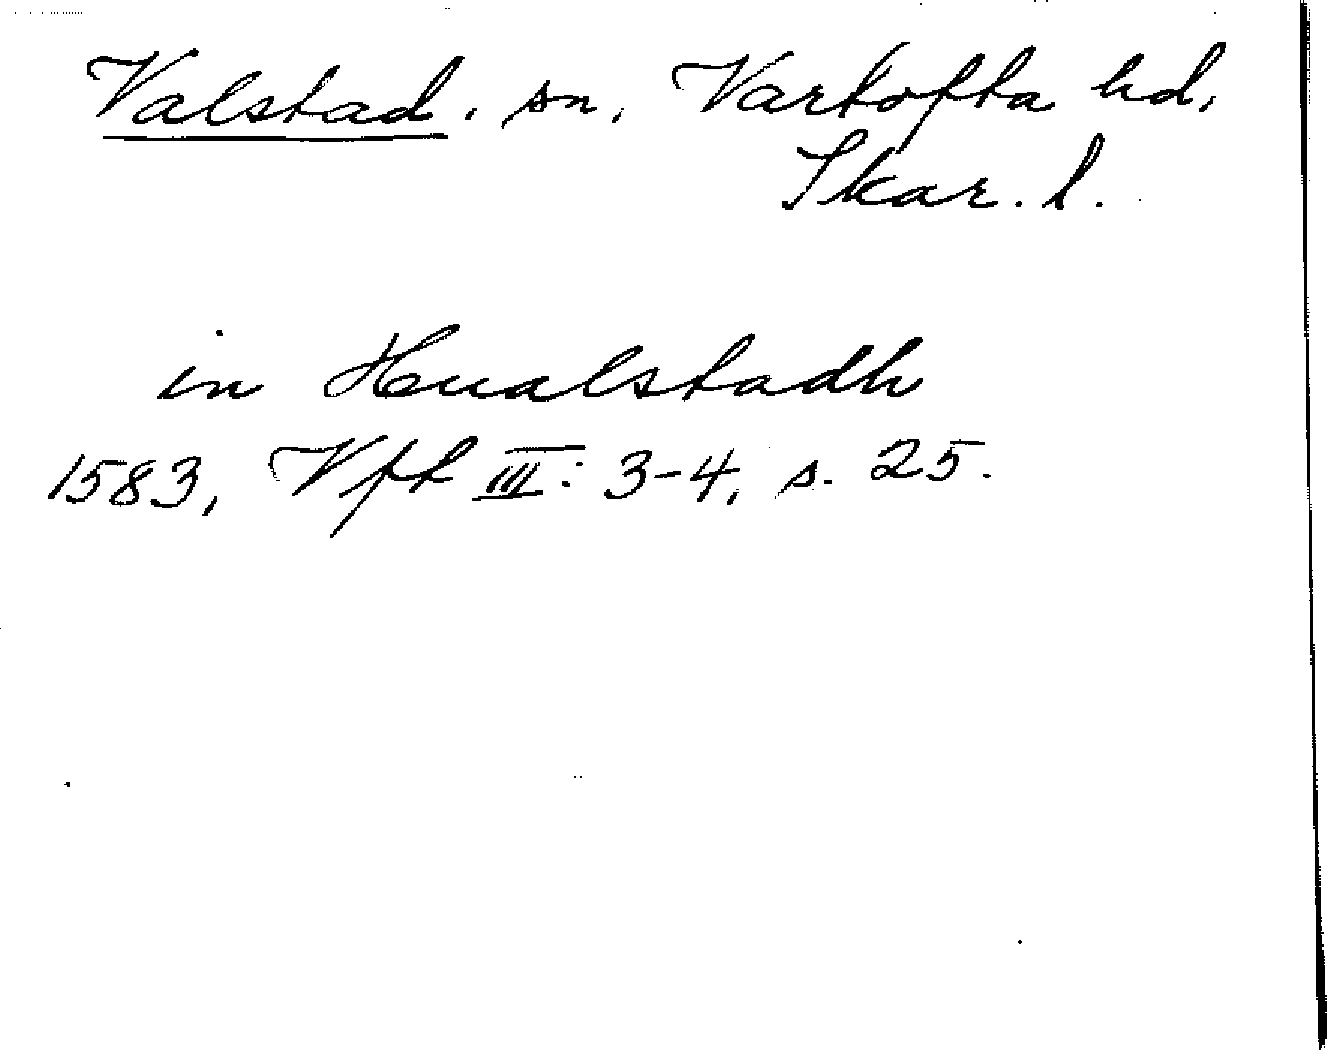 Valstad. sn, Vartofta hd,
Skar. l.
in Hualstadh
1583, Vft III: 3-4, s. 25.